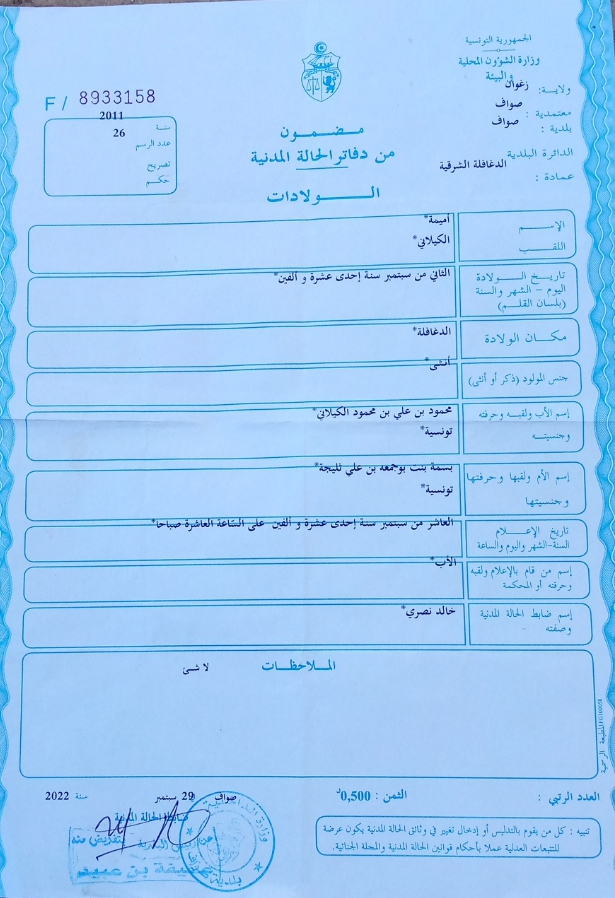 الجمهورية التونسية
وزارة الشؤون المحلية
والبيئة
ولاية: زغوان
معتمدية : صواف
بلدية : صواف
الدائرة البلدية
عمادة : الدغافلة الشرقية
F / 8933158
سنة 2011
عدد الرسم 26
تصريح
حكم
مضمون
من دفاتر الحالة المدنية
الولادات
الإسم أميمة*
اللقب الكيلاني*
تاريخ الولادة الثاني من سبتمبر سنة إحدى عشرة و ألفين*
اليوم - الشهر والسنة
(بلسان القلم)
مكان الولادة الدغافلة*
جنس المولود (ذكر أو أنثى) أنثى*
إسم الأب ولقبه وحرفته محمود بن علي بن محمود الكيلاني*
وجنسيته تونسية*
إسم الأم ولقبها وحرفتها بسمة بنت بوجمعه بن علي ثليجة*
وجنسيتها تونسية*
تاريخ الإعلام العاشر من سبتمبر سنة إحدى عشرة و ألفين على الساعة العاشرة صباحا*
السنة-الشهر واليوم والساعة
إسم من قام بالإعلام ولقبه الأب*
وحرفته أو المحكمة
إسم ضابط الحالة المدنية خالد نصري*
وصفته -
الملاحظات لا شئ
العدد الرتبي : الثمن : 0,500د
صواف 29 سبتمبر سنة 2022
ضابط الحالة المدنية
تنبيه : كل من يقوم بالتدليس أو إدخال تغيير في وثائق الحالة المدنية يكون عرضة
للتتبعات العدلية عملا بأحكام قوانين الحالة المدنية والمجلة الجنائية.